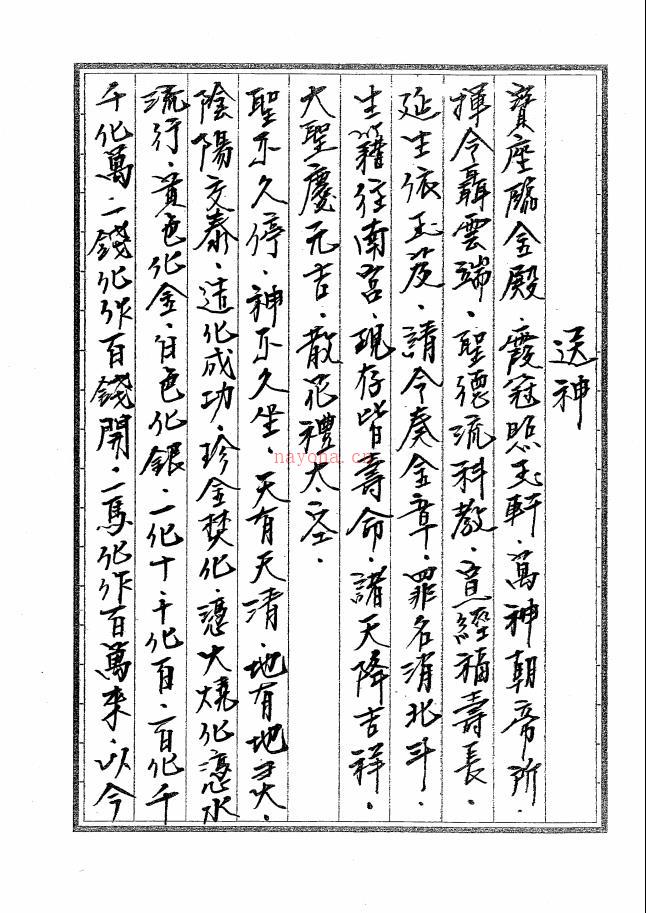 送神
寶座臨金殿．霞冠照玉軒．萬神朝帝所．
揮令聶雲端．聖德流科教．道經福壽長．
延生依玉岌．請令奏金章．罪名消北斗．
生籍往南宮．現存皆壽命．諸天降吉祥．
大聖慶元吉．散花禮太空．
聖不久停．神不久坐．天有天清．地有地灵．
陰陽交泰．造化成功．珍金焚化．憑火燒化憑水
流行．黃色化金．白色化銀．一化十．十化百．百化千
千化萬．一錢化作百錢開．一馬化作百萬來．以今
nayona.cn